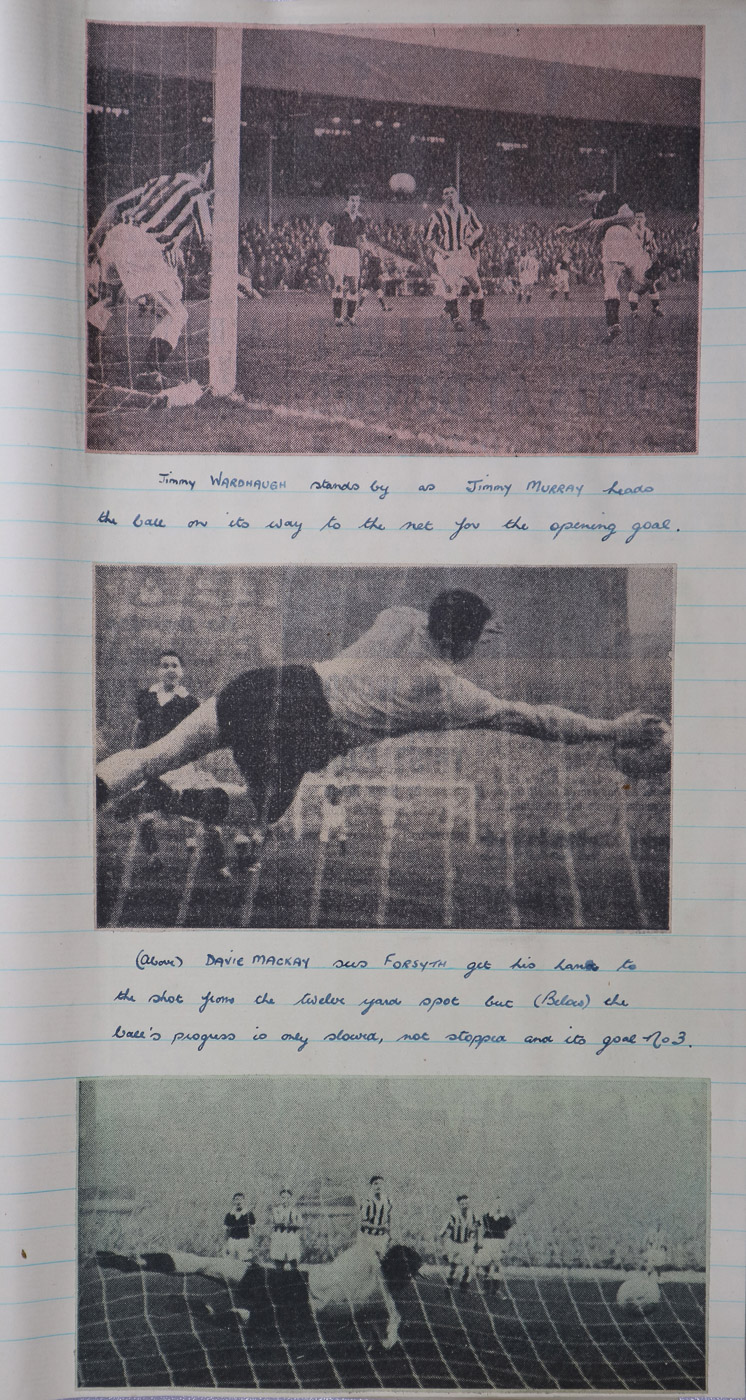 Jimmy WARDHAUGH stands by as Jimmy MURRAY heads
the ball on its way to the net for the opening goal.
(Above) DAVIE MACKAY sees FORSYTH get his hand to
the shot from the twelve yard spot but (Below) the
ball's progress is only slowed, not stopped and its goal No 3.